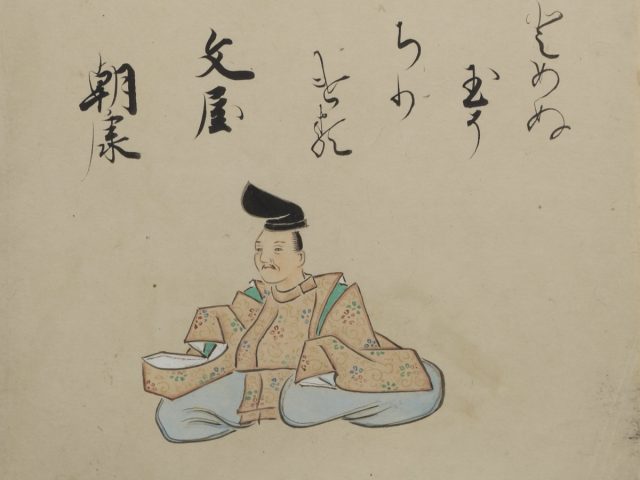 とめぬ
玉そ
ちり
ける
文屋
朝康